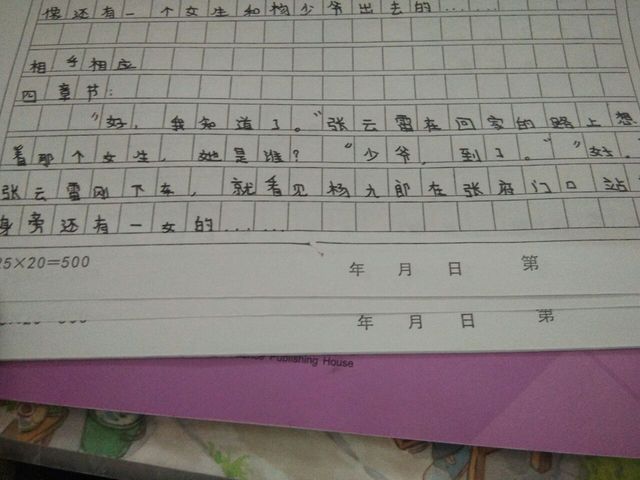 像还有一个女生和杨少爷出去的……
相乎相应
四章节：
“好，我知道了。”张云雷在回家的路上想
着那个女生，她是谁？“少爷，到了。”“好。
张云雷刚下车，就看见杨九郎在张府门口站
身旁还有一女的……
25×20=500
年 月 日 第
年 月 日 第
Publishing House